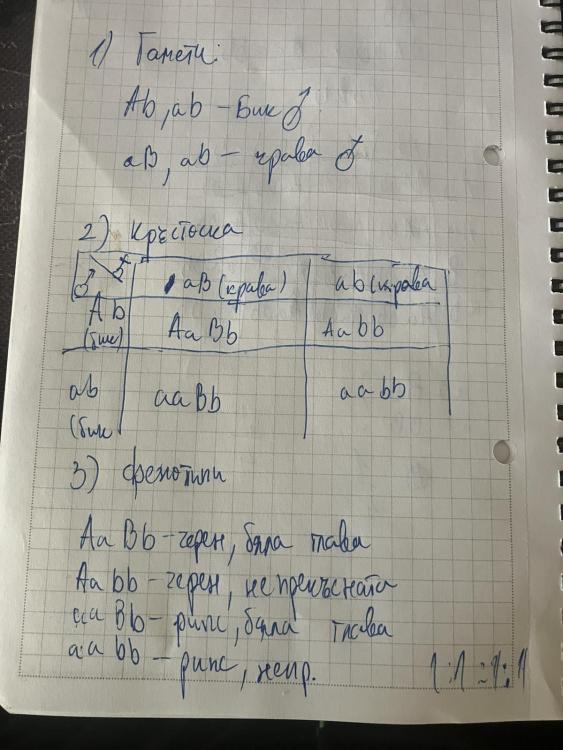 1) Гамети:
Ab, ab – Бик ♂
aB, ab – крава ♂
2) Кръстоска
♂ ♀ aB (крава) ab (крава
Ab (бик) AaBb Aabb
ab (бик aaBb aabb
3) фенотипи
AaBb – черен, бяла глава
Aabb – черен, непрекъсната
aaBb – рипс, бяла глава
aabb – рипс, непр.
1:1:1:1